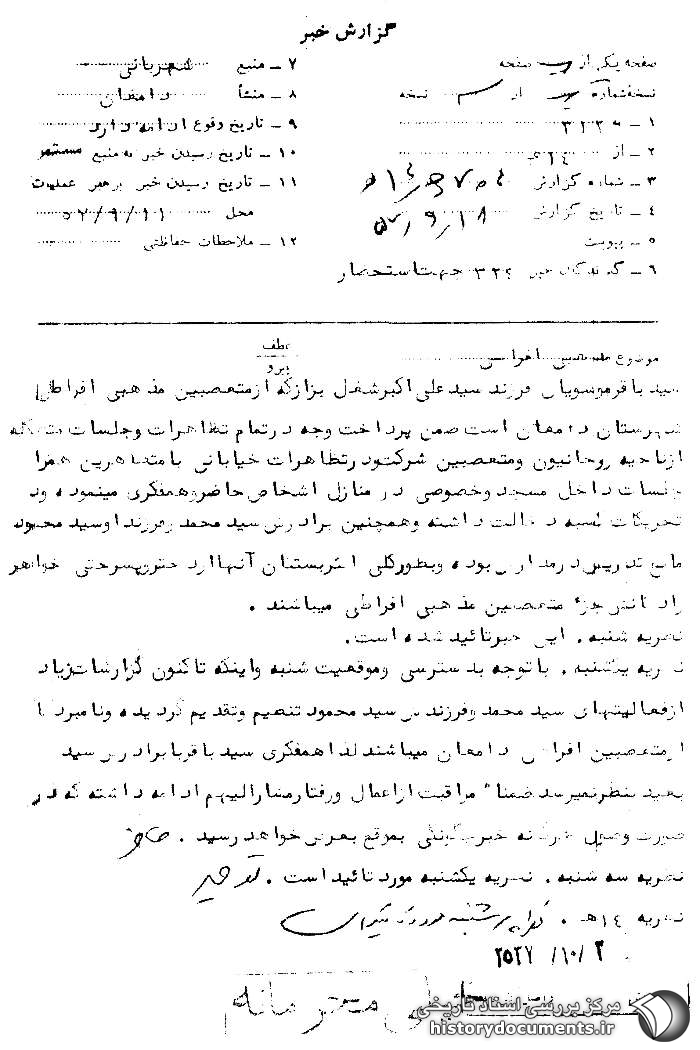 گزارش خبر
صفحه یکی از یک صفحه
نسخه شماره یک از سه نسخه
۱ ـ
۲ ـ از ۱۴ هـ
۳ ـ شماره گزارش
۴ ـ تاریخ گزارش ۵۷/۹/۱۸
۵ ـ پیوست
۶ ـ گیرندگان خبر ۳۲۴ جهت استحضار
۷ ـ منبع شهربانی
۸ ـ منشأ دامغان
۹ ـ تاریخ وقوع ادامه دارد
۱۰ ـ تاریخ رسیدن خبر به منبع مستمر
۱۱ ـ تاریخ رسیدن خبر به رهبر عملیات
محل ۵۷/۹/۱۱
۱۲ ـ ملاحظات حفاظتی
موضوع متعصبین افراطی
عطف
پیرو
سید باقر موسویان فرزند سید علی اکبر شغل بزاز که از متعصبین مذهبی افراطی
شهرستان دامغان است ضمن پرداخت وجه در تمام تظاهرات و جلسات متشکله
از ناحیه روحانیون و متعصبین شرکت و در تظاهرات خیابانی با متظاهرین همراه
جلسات داخل مسجد و خصوصی در منازل اشخاص حاضر و همفکری مینموده و در
تحریکات کسبه دخالت داشته و همچنین برادرش سید محمد و فرزند او سید محمود
مانع تدریس در مدارس بوده و بطور کلی اکثر بستگان آنها از دختر و پسر حتی خواهر
زادگانش جزء متعصبین مذهبی افراطی میباشند .
نظریه شنبه . این خبر تائید شده است .
نظریه یکشنبه . با توجه به دسترسی و موقعیت شنبه و اینکه تاکنون گزارشات زیاد
از فعالیتهای سید محمد و فرزندش سید محمود تنظیم و تقدیم گردیده و نامبرد
از متعصبین افراطی دامغان میباشند لذا همفکری سید باقر با برادرش سید
بعید بنظر نمیرسد ضمناً مراقبت از اعمال و رفتار مشارالیهم ادامه داشته که در
صورت وصول هرگونه خبر چگونگی بموقع بعرض خواهد رسید .
نظریه سه شنبه . نظریه یکشنبه مورد تائید است .
نظریه ۱۴ هـ . نظریه سه شنبه مورد تائید است
۲۵۳۷/۱۰/۲
خیلی محرمانه
مرکز بررسی اسناد تاریخی
historydocuments.ir